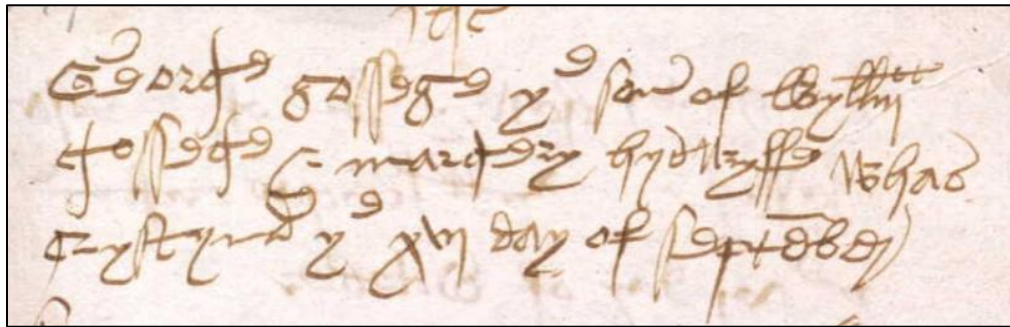 George gossege ye son of Wyllm
gossege & margery hys wyffe was
crystynd ye xvi day of september